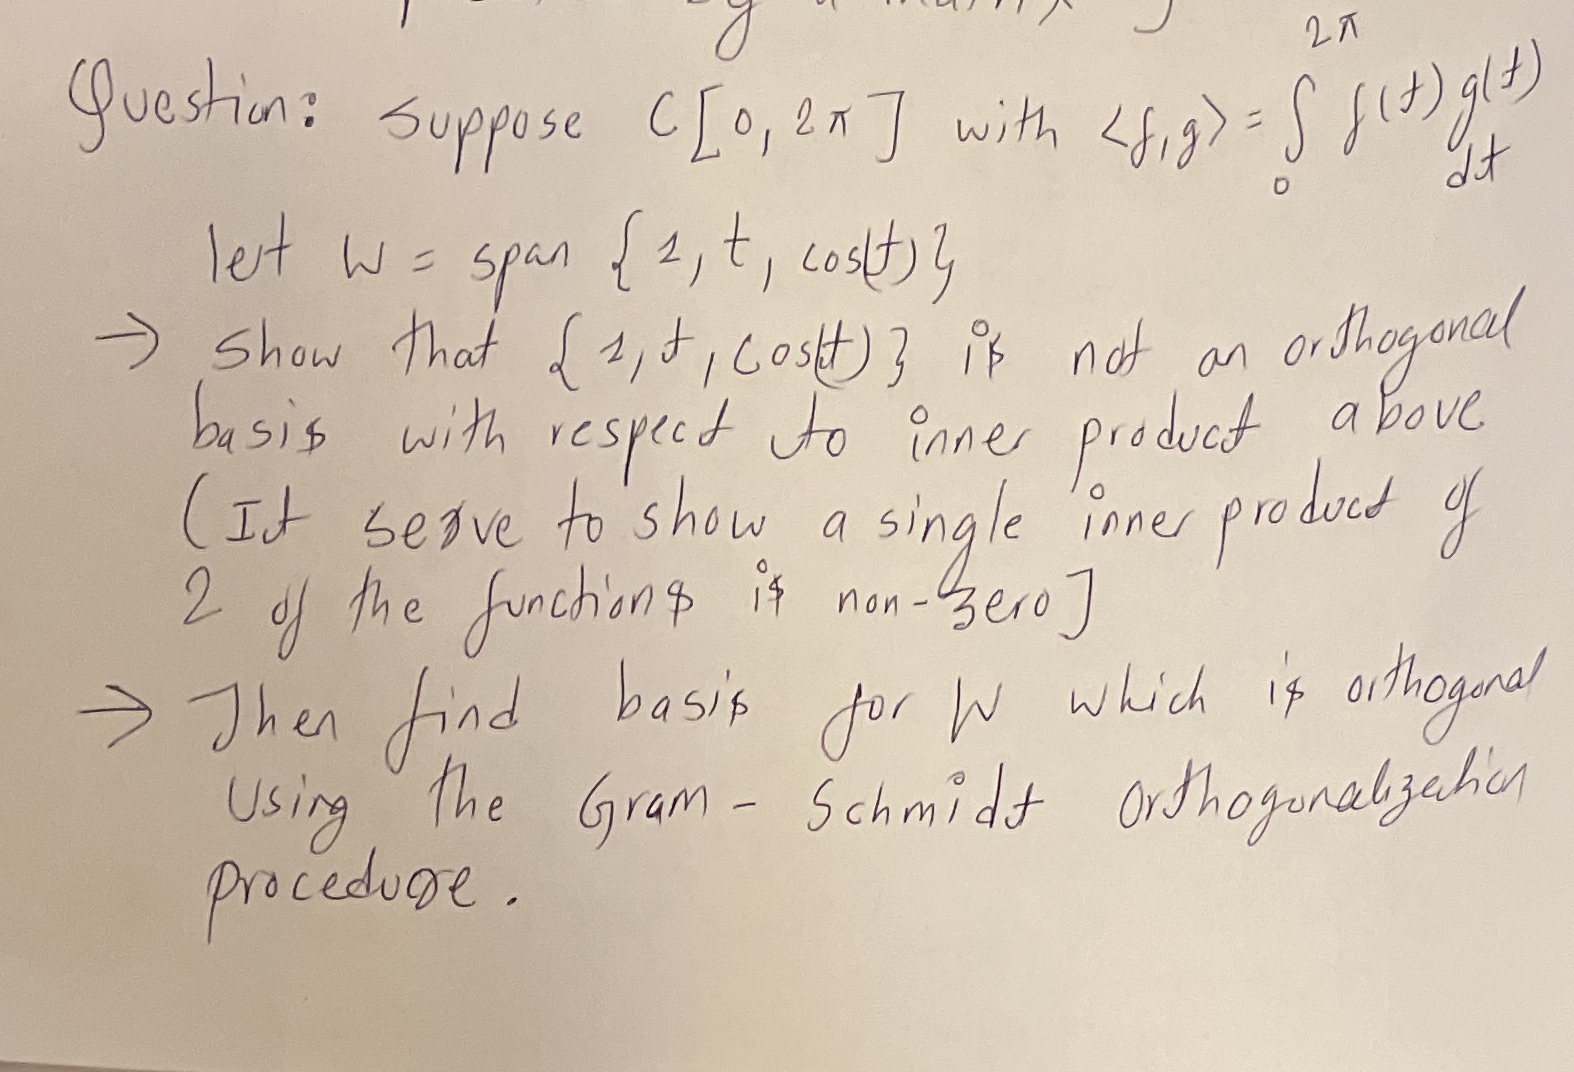 by a matrix
Question: suppose C[0, 2π] with <f,g> = ∫₀^2π f(t) g(t) dt
let W = span {1, t, cos(t)}
→ show that {1, t, cos(t)} is not an orthogonal
basis with respect to inner product above
(It serve to show a single inner product of
2 of the functions is non-zero]
→ Then find basis for W which is orthogonal
Using the Gram - Schmidt orthogonalization
procedure.